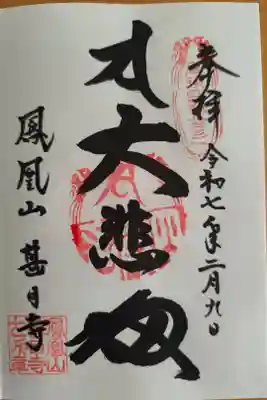 奉拝 令和七年二月九日
大悲殿
鳳凰山 甚目寺